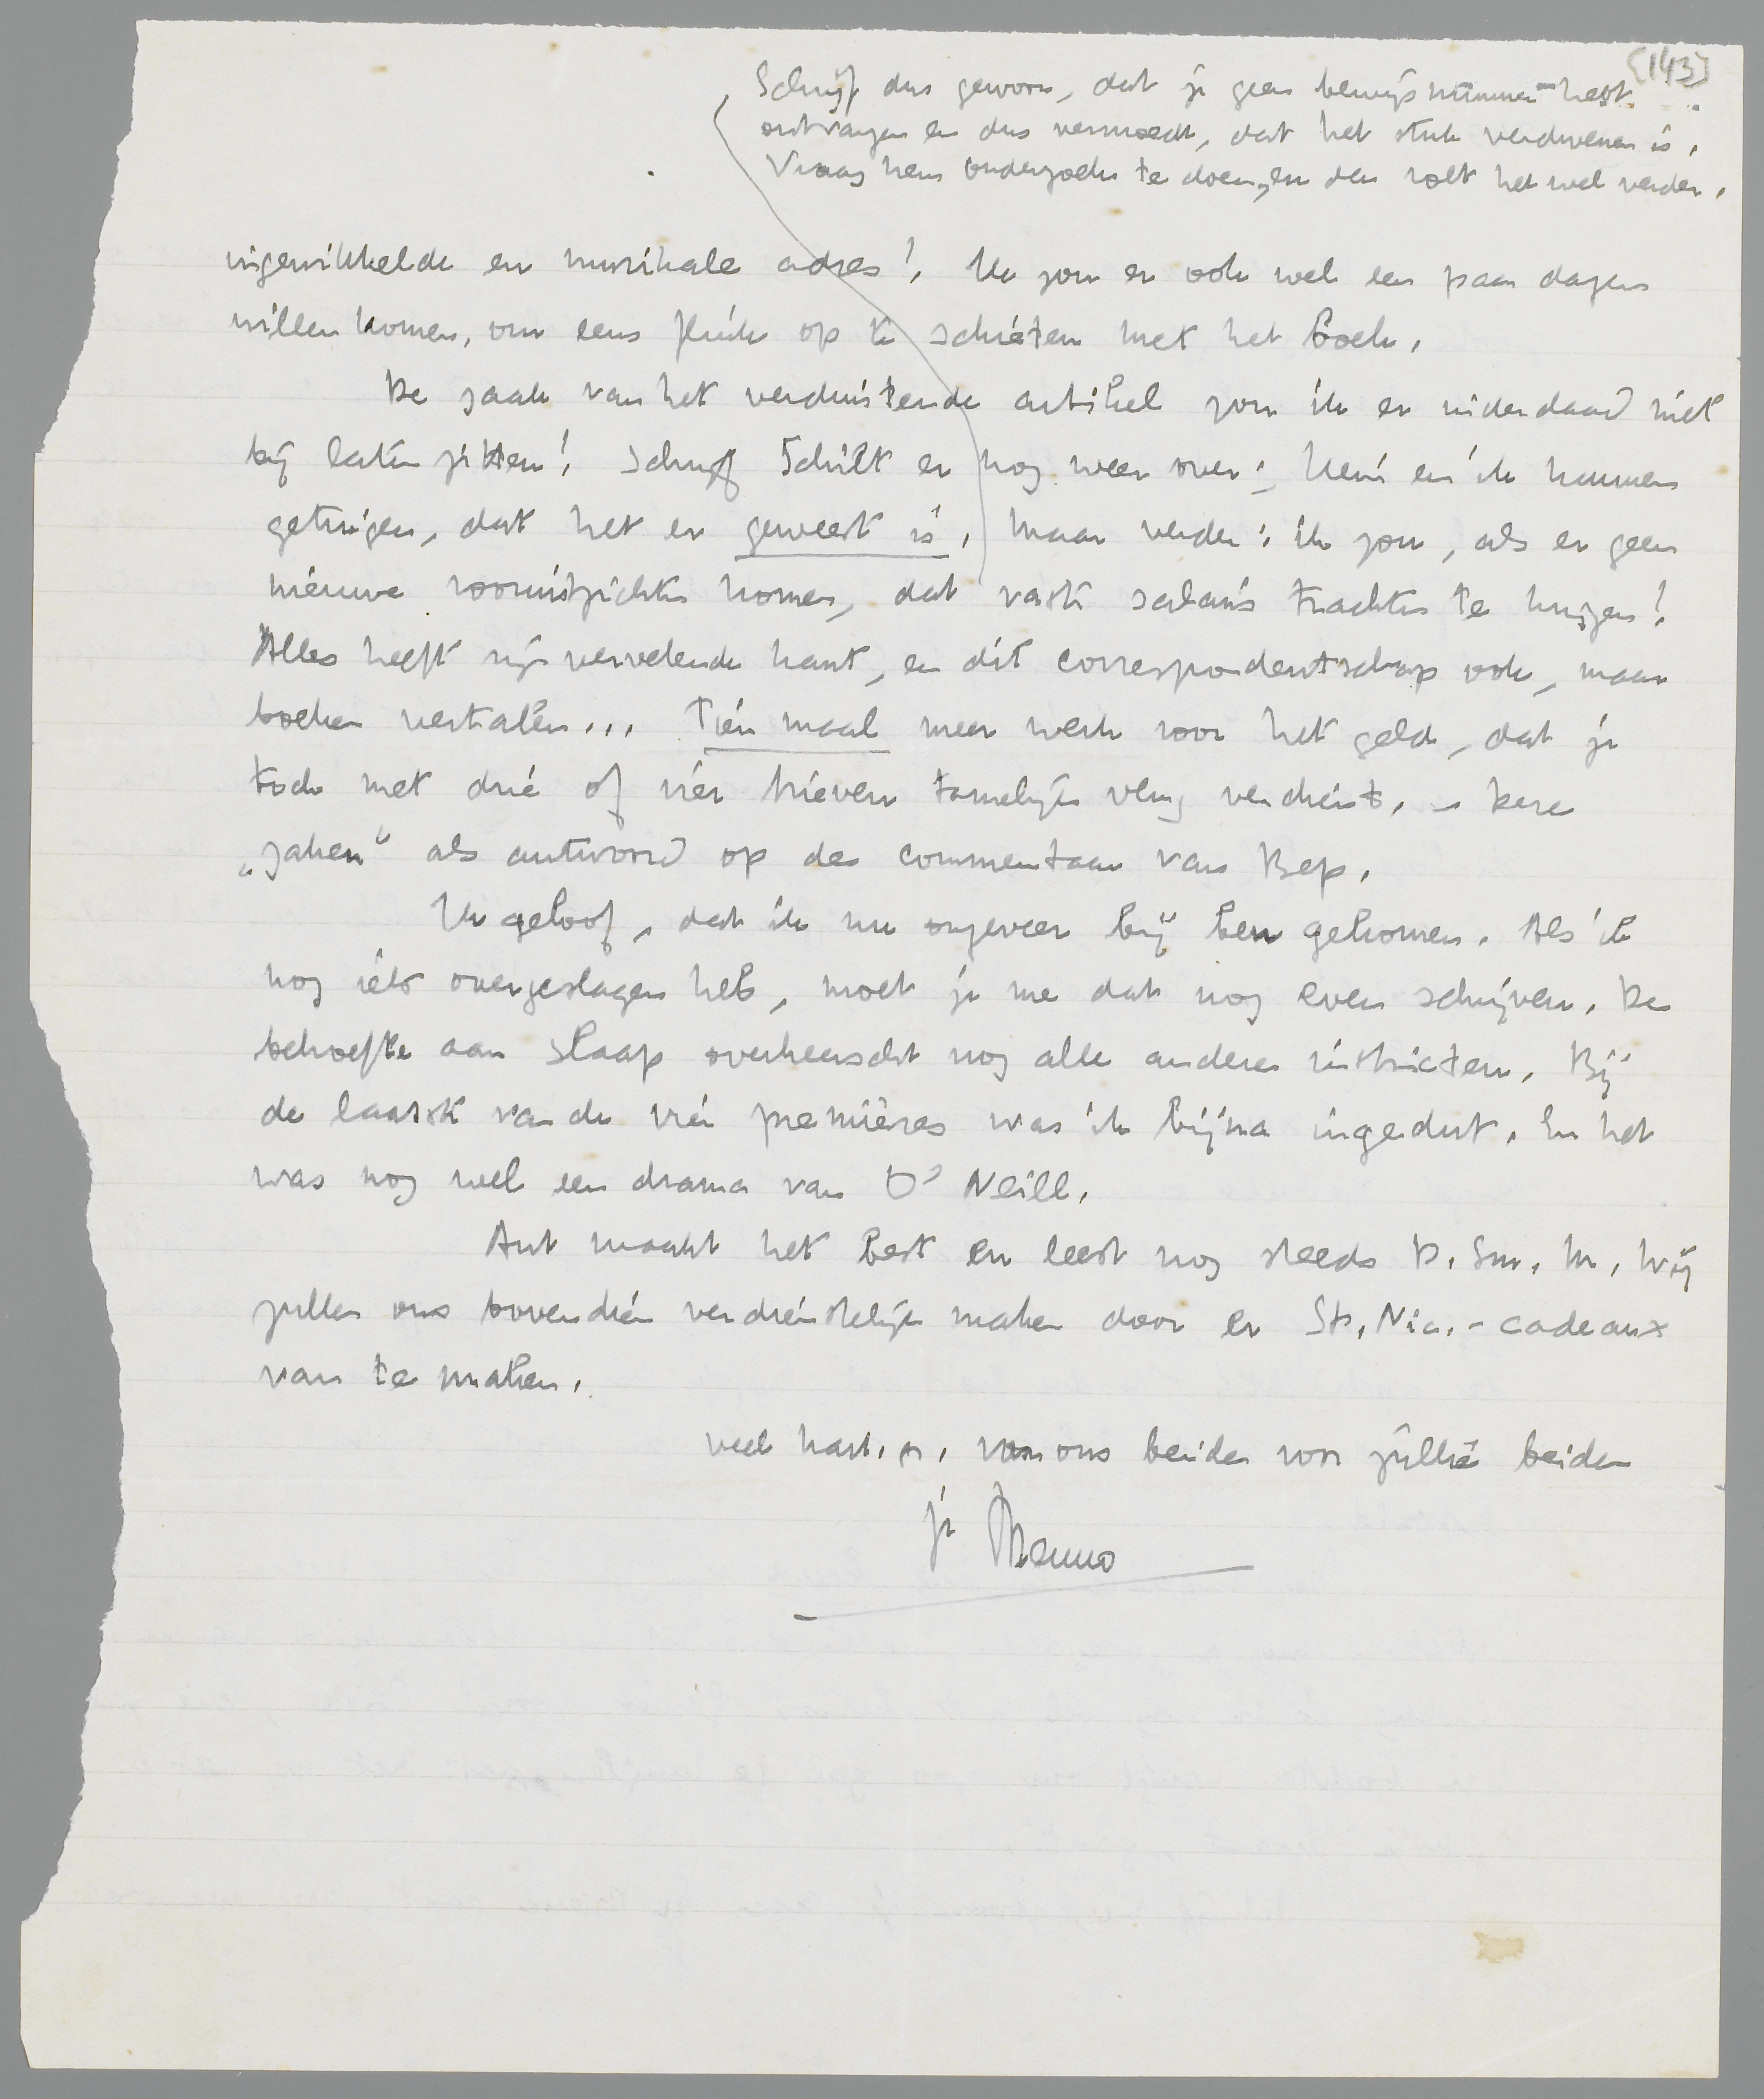 [143]
Schrijf dus gewoon, dat je geen bewijsnummer hebt
ontvangen en dus vermoedt, dat het stuk verdwenen is.
Vraag hem onderzoek te doen, en dan rolt het wel verder.
ingewikkelde en muzikale adres! Ik zou er ook wel een paar dagen
willen komen, om eens flink op te schieten met het boek.
De zaak van het verduisterde artikel zou ik er inderdaad niet
bij laten zitten! Schrijf Schilt er nog weer over; Hein en ik kunnen
getuigen, dat het er geweest is. Maar verder: ik zou, als er geen
nieuwe vooruitzichten komen, dat vaste salaris trachten te krijgen!
Alles heeft zijn vervelende kant, en dit correspondentschap ook, maar
boeken vertalen... Tien maal meer werk voor het geld, dat je
toch met drie of vier brieven tamelijk vlug verdient. – Deze
„zaken" als antwoord op den commentaar van Bep.
Ik geloof, dat ik nu ongeveer bij ben gekomen. Als ik
nog iets overgeslagen heb, moet je me dat nog even schrijven. De
behoefte aan slaap overheerscht nog alle andere instincten. Bij
de laatste van de vier premières was ik bijna ingedut. En het
was nog wel een drama van O' Neill.
Ant maakt het best en leest nog steeds D. Sm. M. Wij
zullen ons bovendien verdienstelijk maken door er St. Nic.-cadeaux
van te maken.
veel hart. gr. van ons beiden voor jullie beiden
je Menno